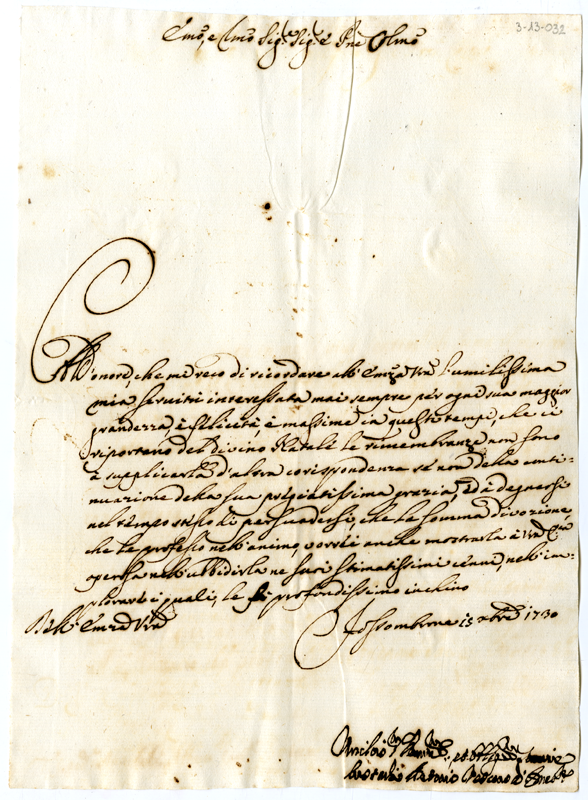 3-13-032
Emo, e Rmo Sigr. Sigr. e Pne Colmo
All'onore, che mi reco di ricordare all'Emza Vra l'umilissima
mia servitù interessata mai sempre per ogni sua maggior
grandezza, e felicità, e massime in questi tempi, che ci
riportano del Divino Natale le rimembranze non sono
a supplicarla d'altra corispondenza se non della conti-
nuazione della sua pregiatissima grazia, ed a degnarsi
nel tempo stesso di persuadersi, che la somma divozione,
che le professo nell'animo, vorrei anche mostrarla a
opera nell'ubbidirla ne suoi stimatissimi cenni, nell'im-
plorare i quali, le fò profondissimo inchino
Dell'Emza Vra
Fossombrone 15 xbre 1730
Umilmo